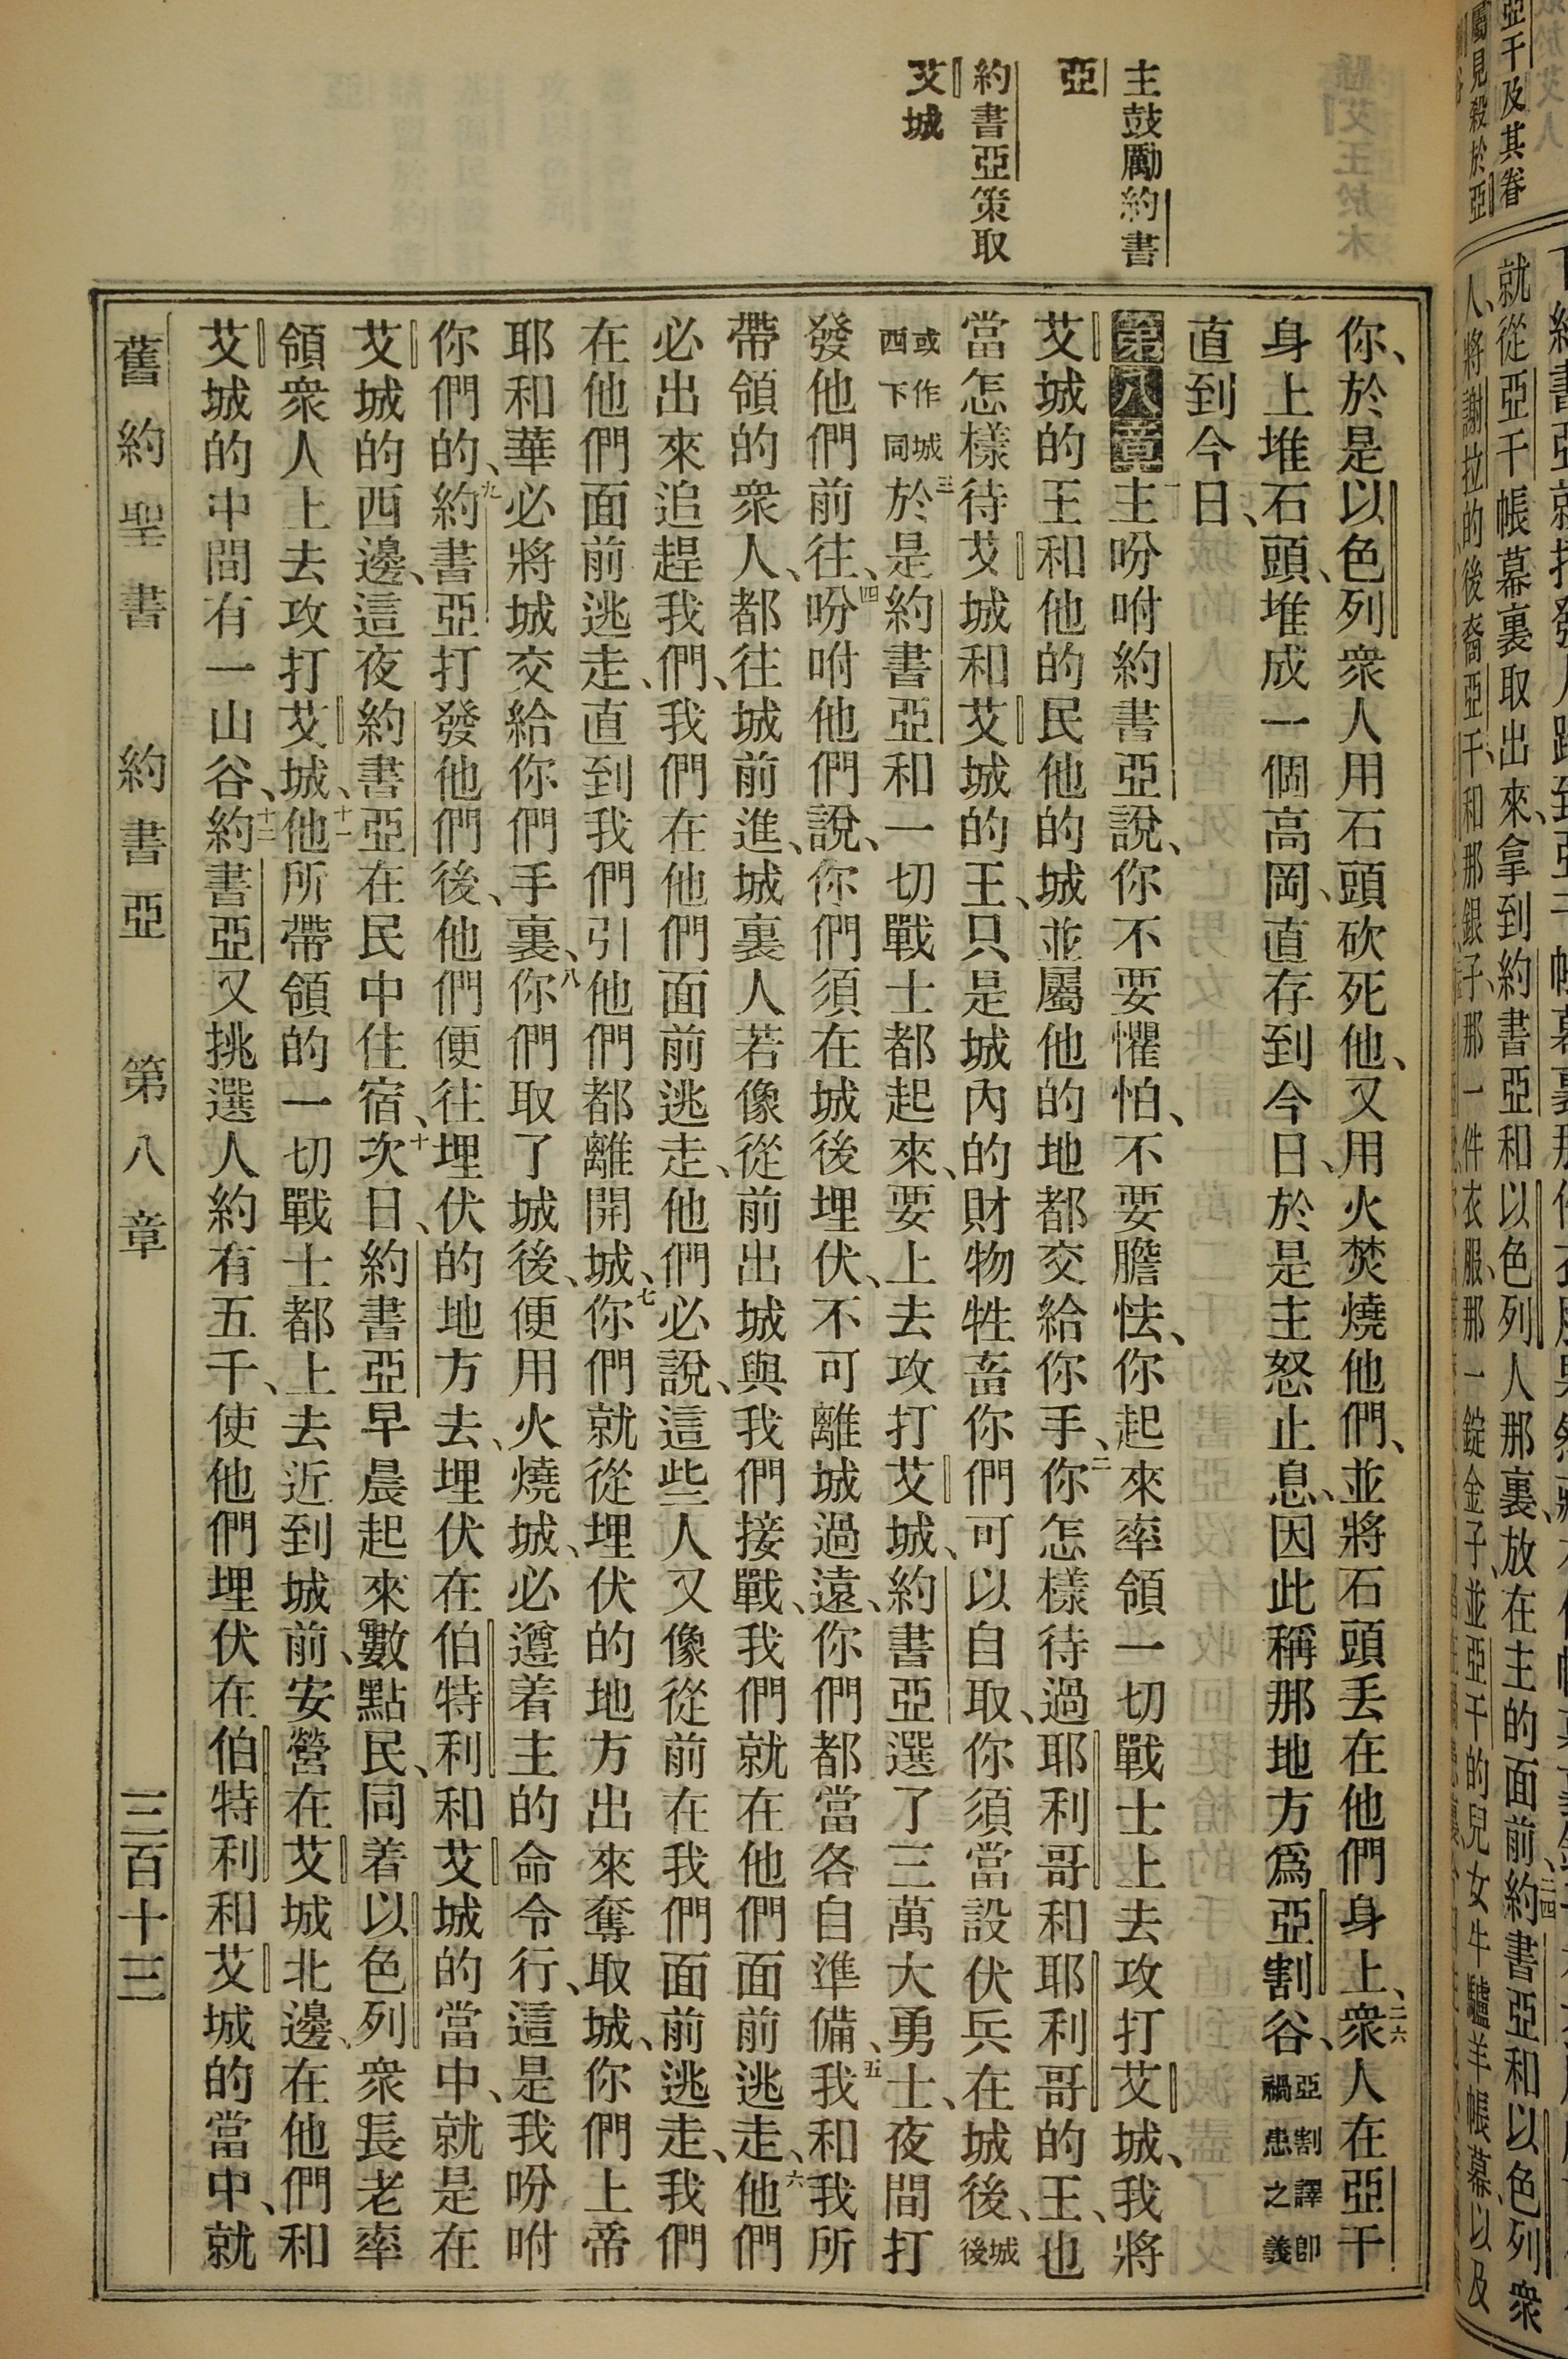 主鼓勵約書
亞
約書亞策取
艾城
你、於是以色列衆人用石頭砍死他、又用火焚燒他們、並將石頭丢在他們身上、二六衆人在亞干
身上堆石頭、堆成一個高岡、直存到今日、於是主怒止息、因此稱那地方爲亞割谷、亞割譯卽禍患之義
直到今日、
第八章一主吩咐約書亞說、你不要懼怕、不要膽怯、你起來率領一切戰士上去攻打艾城、我將
艾城的王和他的民他的城並屬他的地都交給你手、二你怎樣待過耶利哥和耶利哥的王、也
當怎樣待艾城和艾城的王、只是城內的財物牲畜你們可以自取、你須當設伏兵在城後、城後
或作城西下同三於是約書亞和一切戰士都起來、要上去攻打艾城、約書亞選了三萬大勇士、夜間打
發他們前往、四吩咐他們說、你們須在城後埋伏、不可離城過遠、你們都當各自準備、五我和我所
帶領的衆人、都往城前進、城裏人若像從前出城與我們接戰、我們就在他們面前逃走、六他們
必出來追趕我們、我們在他們面前逃走、他們必說、這些人又像從前在我們面前逃走、我們
在他們面前逃走、直到我們引他們都離開城、七你們就從埋伏的地方出來奪取城、你們上帝
耶和華必將城交給你們手裏、八你們取了城後、便用火燒城、必遵着主的命令行、這是我吩咐
你們的、九約書亞打發他們後、他們便往埋伏的地方去、埋伏在伯特利和艾城的當中、就是在
艾城的西邊、這夜約書亞在民中住宿、十次日、約書亞早晨起來數點民、同着以色列衆長老率
領衆人上去攻打艾城、十一他所帶領的一切戰士都上去近到城前、安營在艾城北邊、在他們和
艾城的中間有一山谷、十二約書亞又挑選人約有五千、使他們埋伏在伯特利和艾城的當中、就
舊約聖書 約書亞 第八章 三百十三
亞干及其眷
屬見殺於亞
就從亞干帳幕裏取出來、拿到約書亞和以色列人那裏、放在主的面前、二四約書亞和以色列衆
人、將謝拉的後裔亞干、和那銀子、那一件衣服、那一錠金子、並亞干的兒女牛驢羊帳幕以及